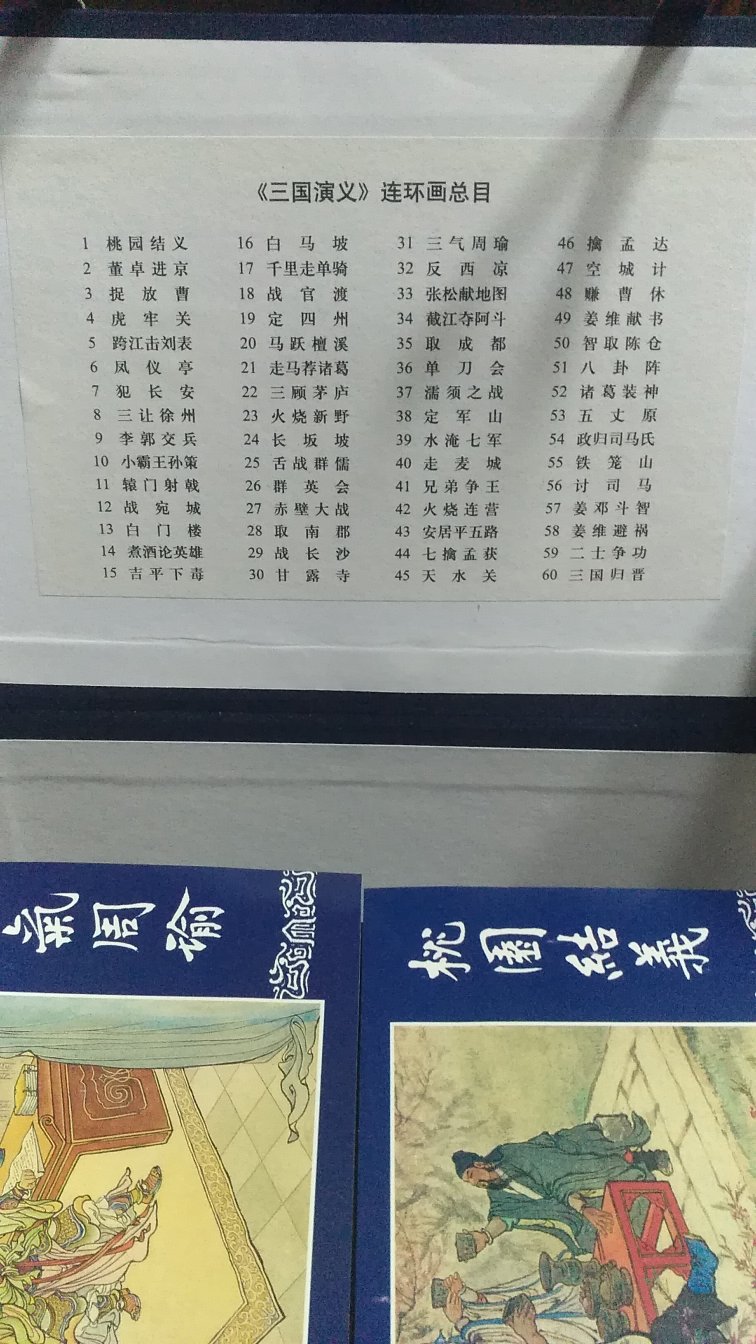 《三国演义》连环画总目
1 桃园结义
2 董卓进京
3 捉放曹
4 虎牢关
5 跨江击刘表
6 凤仪亭
7 犯长安
8 三让徐州
9 李郭交兵
10 小霸王孙策
11 辕门射戟
12 战宛城
13 白门楼
14 煮酒论英雄
15 吉平下毒
16 白马坡
17 千里走单骑
18 战官渡
19 定四州
20 马跃檀溪
21 走马荐诸葛
22 三顾茅庐
23 火烧新野
24 长坂坡
25 舌战群儒
26 群英会
27 赤壁大战
28 取南郡
29 战长沙
30 甘露寺
31 三气周瑜
32 反西凉
33 张松献地图
34 截江夺阿斗
35 取成都
36 单刀会
37 濡须之战
38 定军山
39 水淹七军
40 走麦城
41 兄弟争王
42 火烧连营
43 安居平五路
44 七擒孟获
45 天水关
46 擒孟达
47 空城计
48 赚曹休
49 姜维献书
50 智取陈仓
51 八卦阵
52 诸葛装神
53 五丈原
54 政归司马氏
55 铁笼山
56 讨司马
57 姜邓斗智
58 姜维避祸
59 二士争功
60 三国归晋
氣周瑜
桃園結義